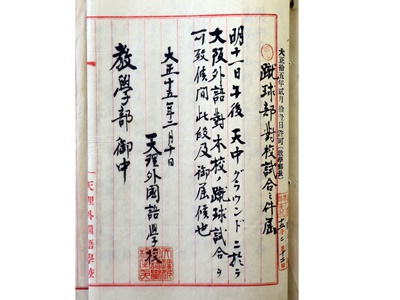 大正拾五年貮月拾壱日許可(教學部長)
蹴球部對校試合之件届
明十一日午後天中グラウンドニ於テ
大阪外語對本校ノ蹴球試合ヲ
可致候間此段及御届候也
大正十五年二月十日
天理外國語學校
教學部御中
天理外國語學校